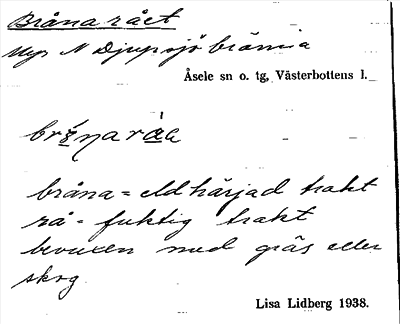 Bråna rået
Myr N Djupsjöbrännia
Åsele sn o. tg, Västerbottens l.
bråna = eldhärjad trakt
rå = fuktig trakt
bevuxen med gräs eller
skog
Lisa Lidberg 1938.